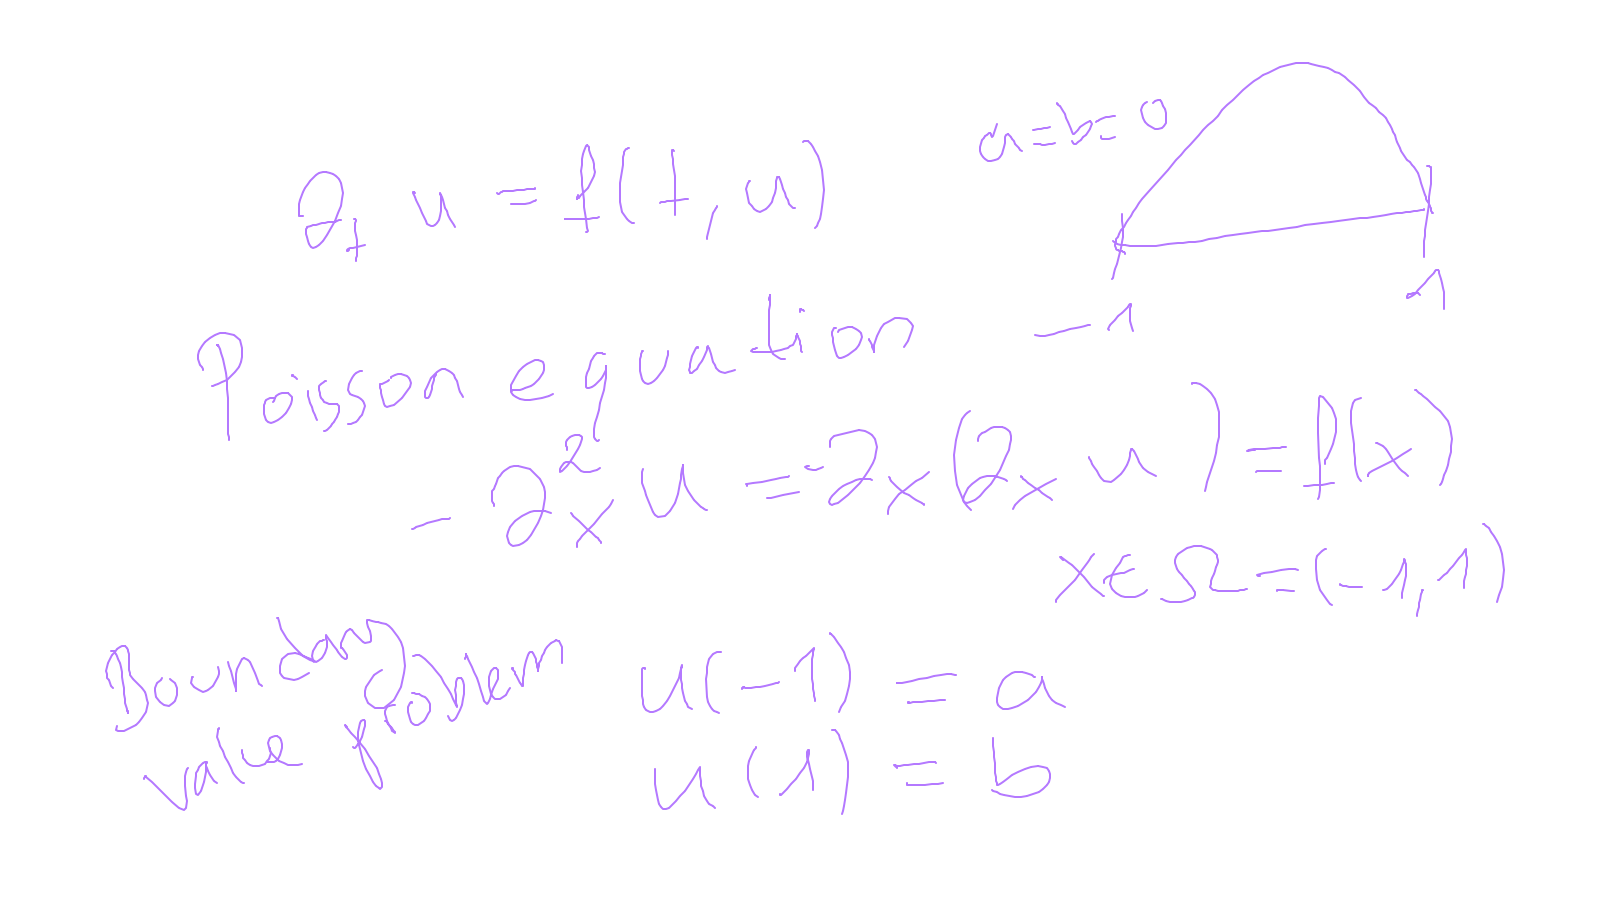 ∂ₜ u = f(t, u)
a = b = 0
-1
1
Poisson equation
-∂²ₓ u = -∂ₓ(∂ₓ u) = f(x)
x ∈ Ω = (-1, 1)
Boundary
value problem
u(-1) = a
u(1) = b